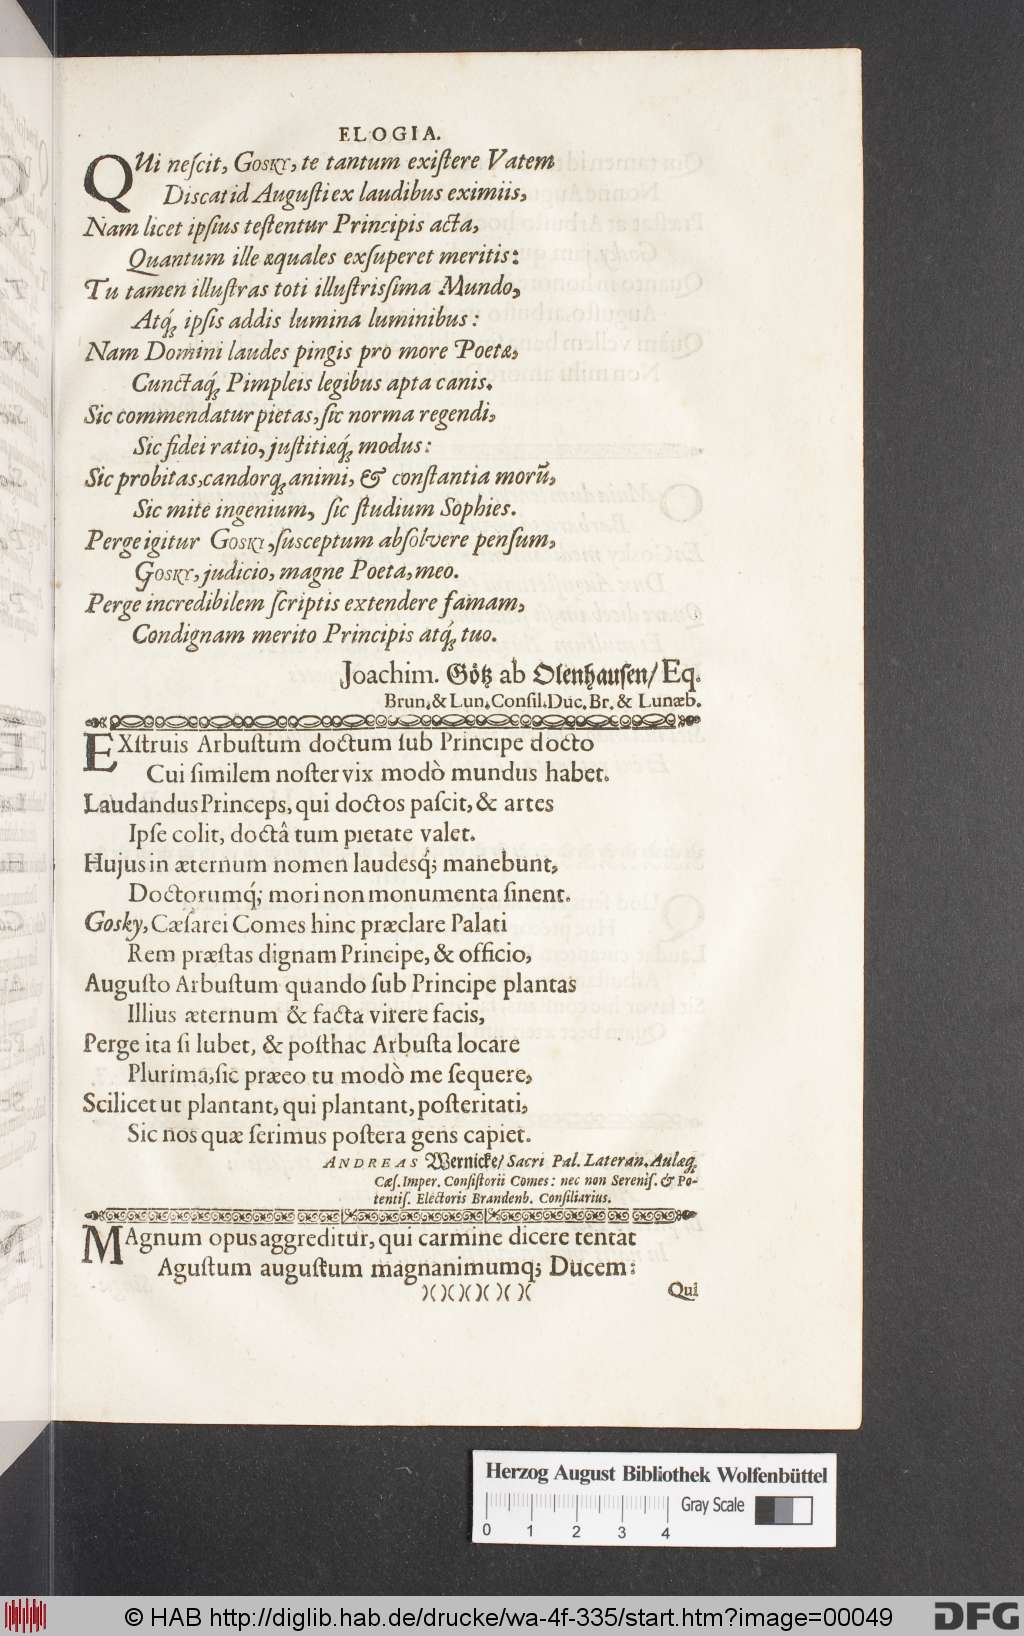 ELOGIA.
QUi neſcit, GOSKY, te tantum exiſtere Vatem
Diſcat id Auguſti ex laudibus eximiis,
Nam licet ipſius teſtentur Principis acta,
Quantum ille æquales exſuperet meritis:
Tu tamen illuſtras toti illuſtrisſima Mundo,
Atq́ꝫ ipſis addis lumina luminibus:
Nam Domini laudes pingis pro more Poetæ,
Cunctaq́ꝫ Pimpleis legibus apta canis.
Sic commendatur pietas, ſic norma regendi,
Sic fidei ratio, juſtitiæq́ꝫ modus:
Sic probitas, candorqꝫ animi, & conſtantia morũ,
Sic mite ingenium, ſic ſtudium Sophies.
Perge igitur GOSKI, ſusceptum abſolvere penſum,
GOSKY, judicio, magne Poeta, meo.
Perge incredibilem ſcriptis extendere famam,
Condignam merito Principis atq́ꝫ tuo.
Joachim. Götz ab Olenhauſen/ Eq.
Brun. & Lun. Conſil. Duc. Br. & Lunæb.
EXſtruis Arbuſtum doctum ſub Principe docto
Cui ſimilem noſter vix modò mundus habet.
Laudandus Princeps, qui doctos paſcit, & artes
Ipſe colit, doctâ tum pietate valet.
Hujus in æternum nomen laudesq́; manebunt,
Doctorumq́; mori non monumenta ſinent.
Gosky, Cæſarei Comes hinc præclare Palati
Rem præſtas dignam Principe, & officio,
Auguſto Arbuſtum quando ſub Principe plantas
Illius æternum & facta virere facis,
Perge ita ſi lubet, & poſthac Arbuſta locare
Plurima, ſic præeo tu modò me ſequere,
Scilicet ut plantant, qui plantant, poſteritati,
Sic nos quæ ſerimus poſtera gens capiet.
ANDREAS Wernicke/ Sacri Pal. Lateran. Aulæqꝫ
Cæſ. Imper. Conſiſtorii Comes: nec non Sereniſ. & Po-
tentiſ. Electoris Brandenb. Conſiliarius.
MAgnum opus aggreditur, qui carmine dicere tentat
Aguſtum auguſtum magnanimumq; Ducem:
)( )( )( )( )( )(
Qui
Herzog August Bibliothek Wolfenbüttel
Gray Scale
0 1 2 3 4
© HAB http://diglib.hab.de/drucke/wa-4f-335/start.htm?image=00049
DFG